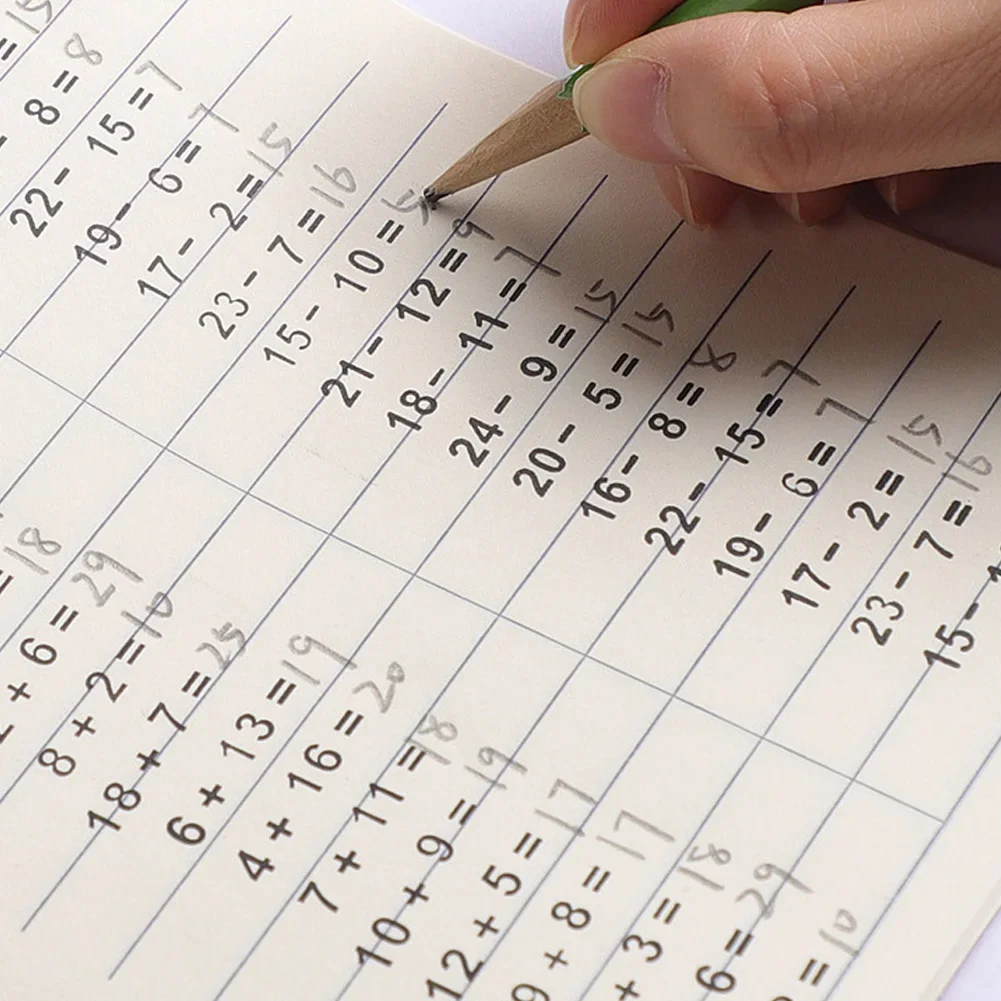 =15
- 8=8
22- 15=7
19- 6=7
17- 2=15
23- 7=16
15- 10=5
21- 12=9
18- 11=7
24- 9=15
20- 5=15
16- 8=8
22- 15=7
19- 6=7
17- 2=15
23- 7=16
15-
=18
+ 6=29
8+2=10
18+7=25
6+13=19
4+16=20
7+11=18
10+9=19
12+5=17
9+8=17
+3=18
6=29
=10